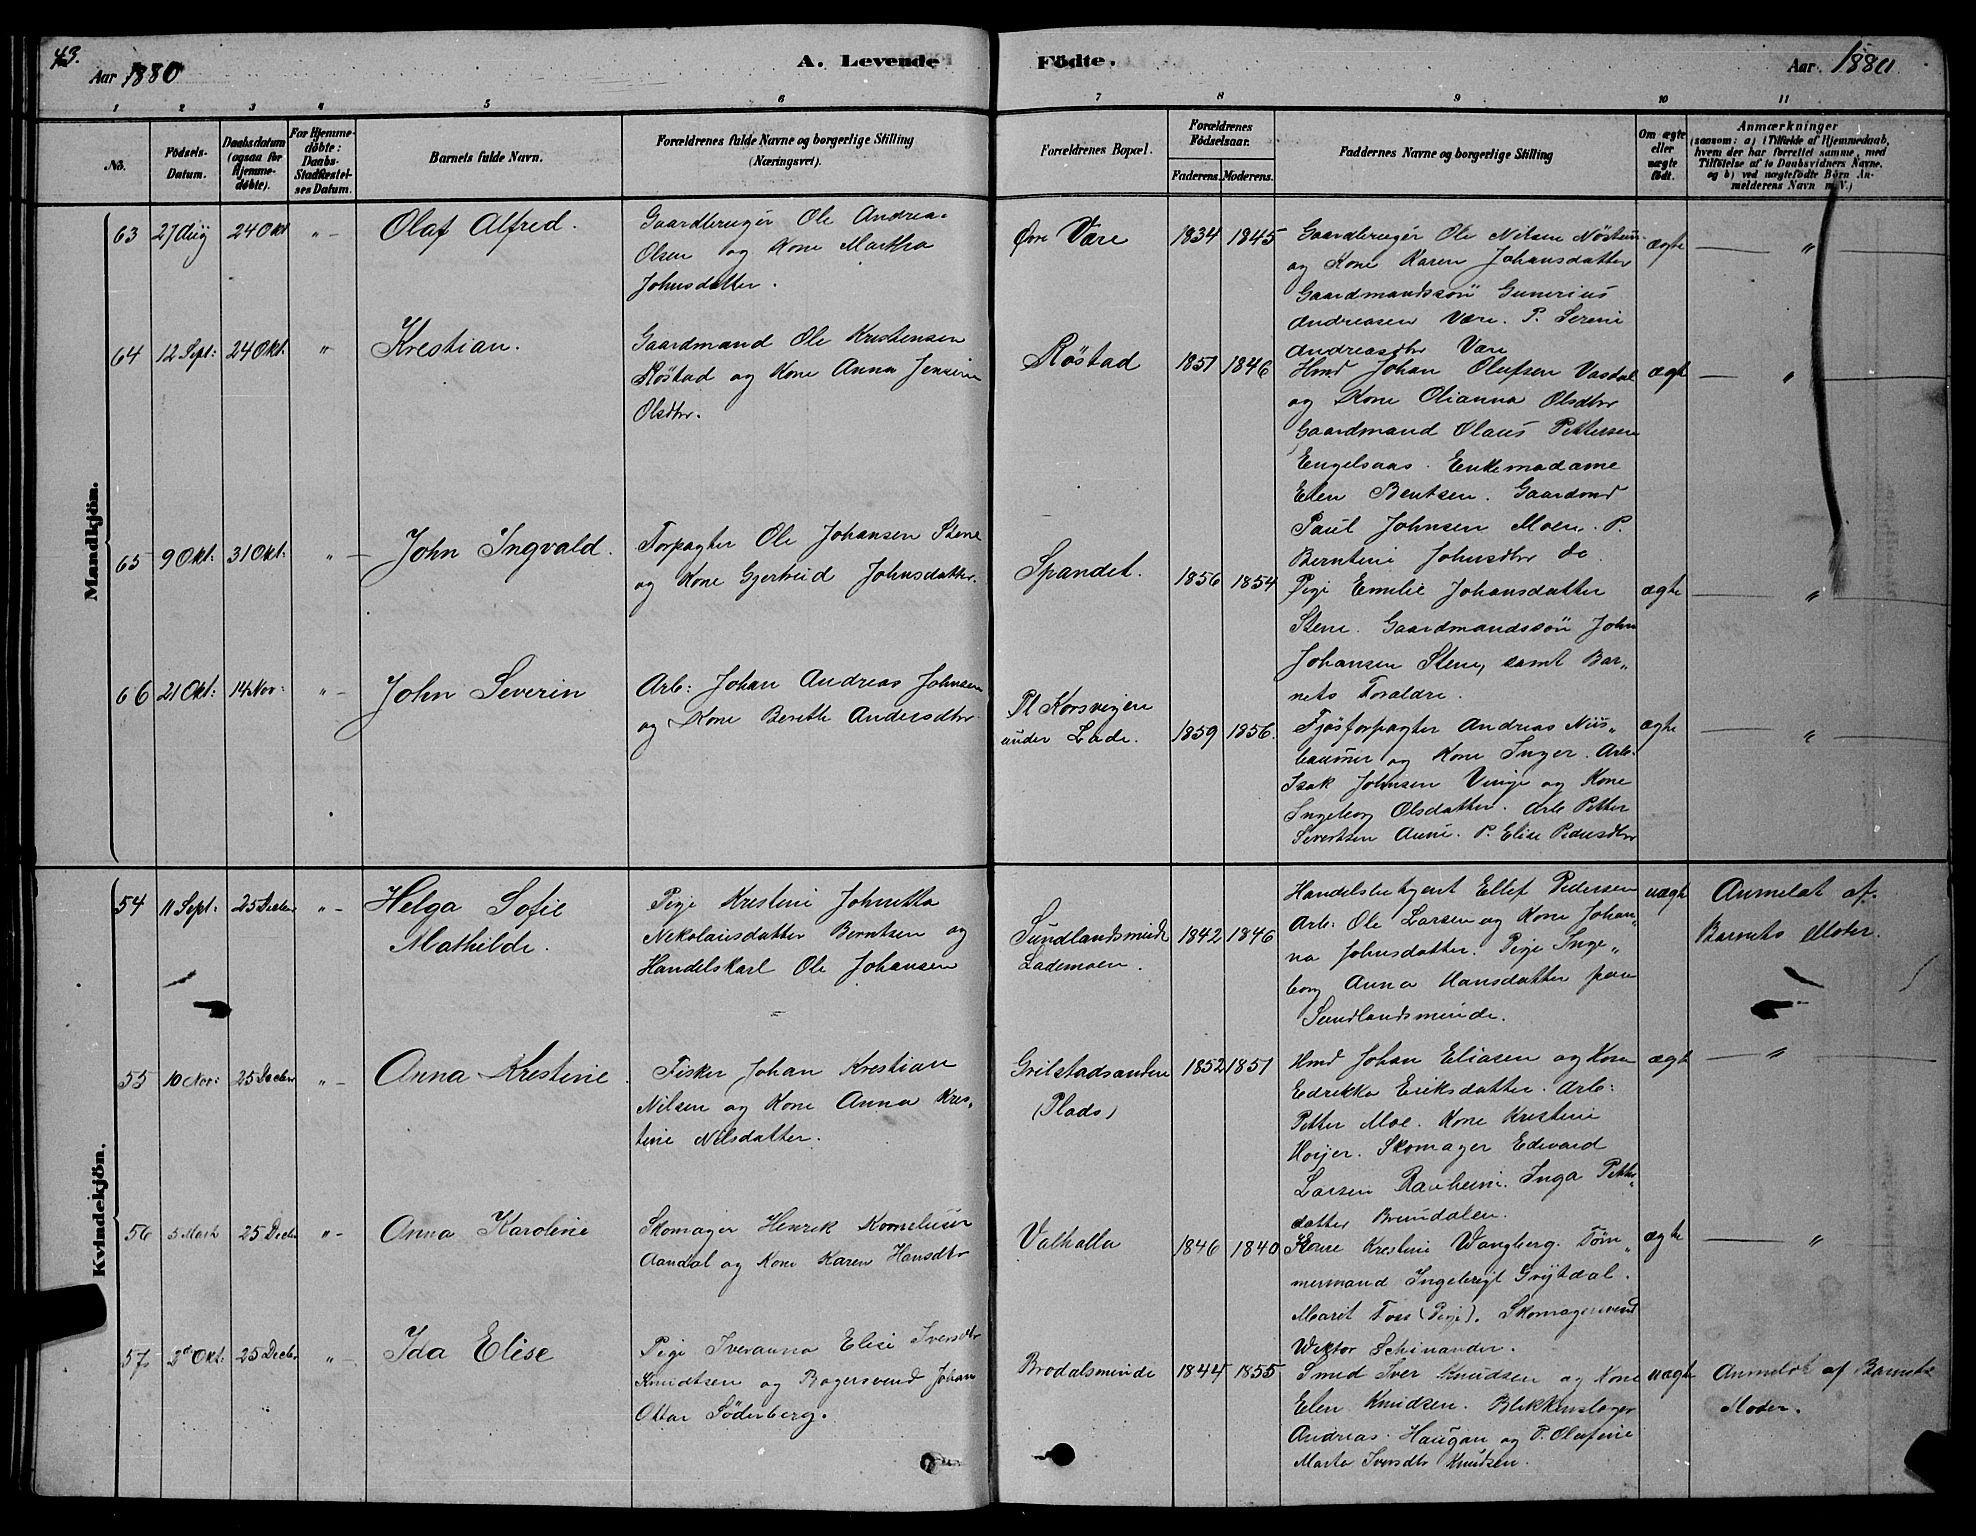 43.
Aar 1880
A. Levende
Födte.
Aar 1880
1 2 3 4 5 6 7 8 9 10 11
No.
Födsels-
Datum.
Daabsdatum
(ogsaa for
Hjemme-
döbte).
For Hjemme-
döbte:
Daabs-
Stadfæstel-
ses Datum.
Barnets fulde Navn.
Forældrenes fulde Navne og borgerlige Stilling
(Næringsvei).
Forældrenes Bopæl.
Forældrenes
Födselsaar.
Faderens. Moderens.
Faddernes Navne og borgerlige Stilling
Om ægte
eller
uægte
födt.
Anmærkninger
(saasom: a) i Tilfælde af Hjemmedaab,
hvem der har forrettet samme, med
Tilföielse af to Daabsvidners Navne,
og b) ved uægtefödte Börn An-
melderens Navn m. V.)
Mandkjön.
63 27 Aug 24 Okt " Olaf Alfred.
Gaardbruger Ole Andrea-
Olsen og Kone Martha
Johnsdatter.
Øvre Være
1834 1845
Gaardbruger Ole Nilsen
og Kone Karen Johansdatter
Gaardmandssön Gunerius
Andreasen Være. P. Serine
Andreasdtr Være
ægte "
64 12 Sept: 24 Okt. " Krestian.
Gaardmand Ole Kristensen
Röstad og Kone Anna Jensine
Olsdtr.
Röstad
1851 1846
Hmd Johan Olufsen Vasdal
og Kone Olianna Olsdtr
Gaardmand Olaus Pettersen
Engelsaas. Enkemadame
Elen Bentsen. Gaardmd
Paul Johnsen Moen. P.
Berntine Johnsdtr do
ægte "
65 9 Okt: 31 Okt. " John Ingvald.
Forpagter Ole Johansen Stene
og Kone Gjertrud Johnsdatter.
Spandet.
1856 1854
Pige Emilie Johansdatter
Stene. Gaardmandssön John
Johansen Stene, samt Bar„
nets Foraldre.
ægte "
66 21 Okt: 14 Nov: " John Severin
Arb: Johan Andreas Johnsen
og Kone Bereth Andersdtr
Pl Korsvigen
under Lade.
1859 1856.
Fjösforpagter Andreas Nus„
baumer og Kone Inger. Arb.
Isak Johnsen Vinge og Kone
Ingeborg Olsdatter. Arb Petter
Sivertsen Aune. P. Elise Pedersdtr
ægte "
Kvindekjön.
54 11 Sept: 25 Decbr " Helga Sofie
Mathilde.
Pige Kristine Johnetta
Nekolaisdatter Berntsen og
Handelskarl Ole Johansen
Sundlandsminde
Lademoen.
1842 1846
Handelsbetjent Ellef Pedersen
Arb: Ole Larsen og Kone Johan„
na Johnsdatter. Pige Inge„
borg Anna Hansdatter paa
Sundlandsminde.
uægte
Anmeldt af
Barnets Moder.
55 10 Nov: 25 Decbr " Anna Krestine
Fisker Johan Krestian
Nilsen og Kone Anna Kres„
tine Nilsdatter.
Grilstadsanden
(Plads)
1852 1851
Hmd Johan Eliasen og Kone
Edrikka Eriksdatter. Arb:
Petter Moe. Kone Krestine
Hoijer. Skomager Edevard
Larsen Ranheim. Inga Petter„
datter Brundalen.
ægte "
56 5 Mars 25 Decbr " Anna Karoline
Skomager Henrek Korneliusen
Aandal og Kone Karen Hansdtr
Valhalla
1846 1840
Kone Krestine Wangberg. Töm„
mermand Ingebrigt Gröjtdal.
Marit Foss (Pige). Skomagersvend
Wiktor Schinander.
ægte "
57 2d Okt: 25 Decbr " Ida Elise
Pige Iveranna Elise Iversdtr
Knudtsen og Bagersvend Johan
Ottar Söderberg.
Brodalsminde
1844 1855
Smed Iver Knudsen og Kone
Elen Knudsen. Blikkenslager
Andreas Haugan og P. Olufine
Marta Iversdtr Knudsen.
uægte
Anmeldt af Barnets
Moder.